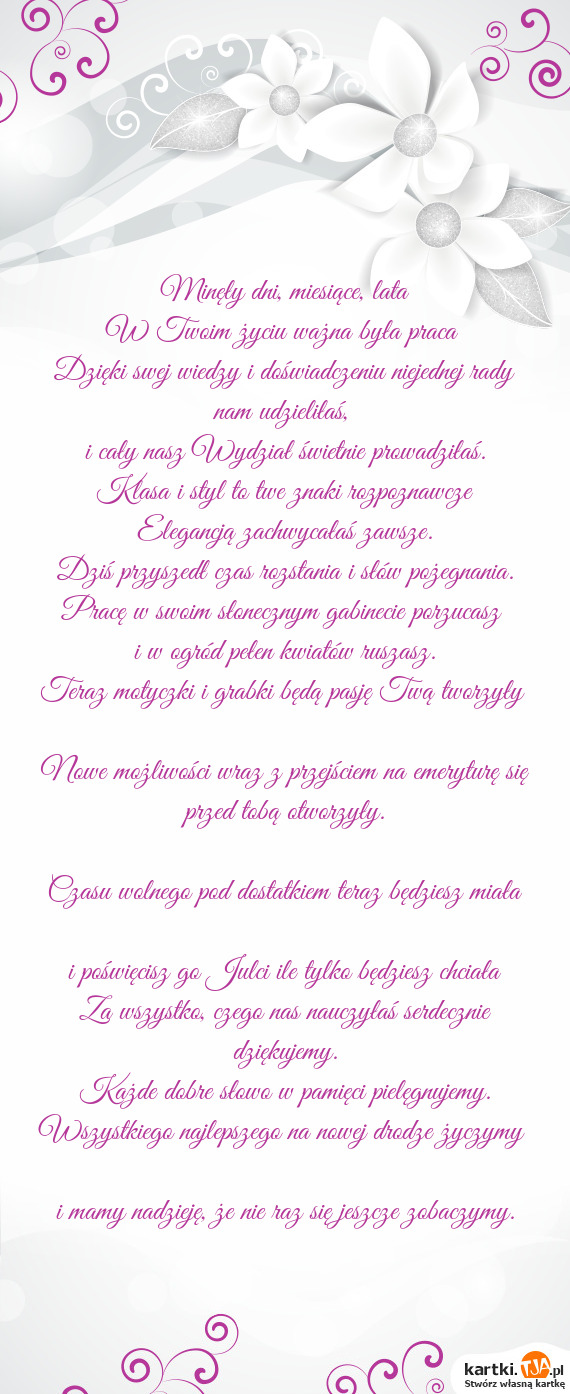 Minęły dni, miesiące, lata
W Twoim życiu ważna była praca
Dzięki swej wiedzy i doświadczeniu niejednej rady
nam udzieliłaś,
i cały nasz Wydział świetnie prowadziłaś.
Klasa i styl to twe znaki rozpoznawcze
Elegancją zachwycałaś zawsze.
Dziś przyszedł czas rozstania i słów pożegnania.
Pracę w swoim słonecznym gabinecie porzucasz
i w ogród pełen kwiatów ruszasz.
Teraz motyczki i grabki będą pasję Twą tworzyły
Nowe możliwości wraz z przejściem na emeryturę się
przed tobą otworzyły.
Czasu wolnego pod dostatkiem teraz będziesz miała
i poświęcisz go Julci ile tylko będziesz chciała
Za wszystko, czego nas nauczyłaś serdecznie
dziękujemy.
Każde dobre słowo w pamięci pielęgnujemy.
Wszystkiego najlepszego na nowej drodze życzymy
i mamy nadzieję, że nie raz się jeszcze zobaczymy.
kartki.TJA.pl
Stwórz własną kartkę